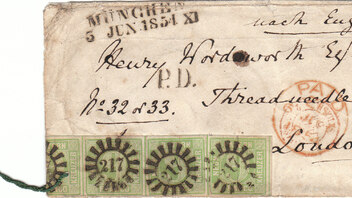 MÜNCHEN
5 JUN. 1854 XI
nach Eng
Henry Wordsworth Esq
P.D.
PAI
No. 32 or 33. Threadneedle
Londo
217 217 217 217